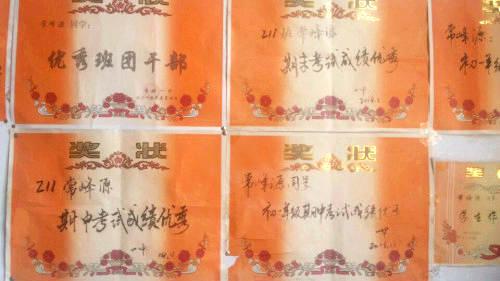 奖状
常峰源 同学:
优秀班团干部
奖状
211班常峰源
期末考试成绩优秀
一中
常峰源:
初一年级
奖状
211 常峰源
期中考试成绩优秀
一中
奖状
常峰源同学
初一年级期中考试成绩优秀
一中
奖